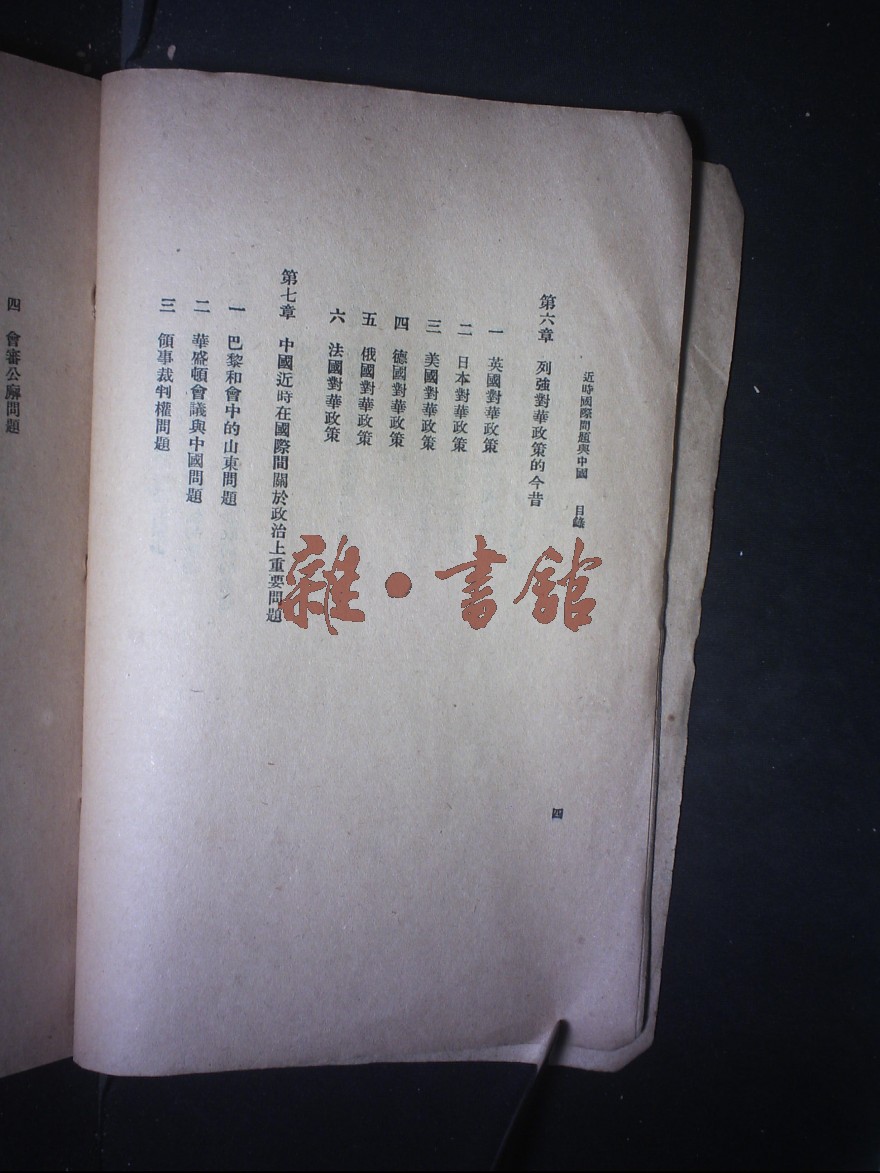 近時國際問題與中國 目錄
第六章 列強對華政策的今昔
一 英國對華政策
二 日本對華政策
三 美國對華政策
四 德國對華政策
五 俄國對華政策
六 法國對華政策
第七章 中國近時在國際間關於政治上重要問題
一 巴黎和會中的山東問題
二 華盛頓會議與中國問題
三 領事裁判權問題
四
四 會審公廨問題
雜·書館